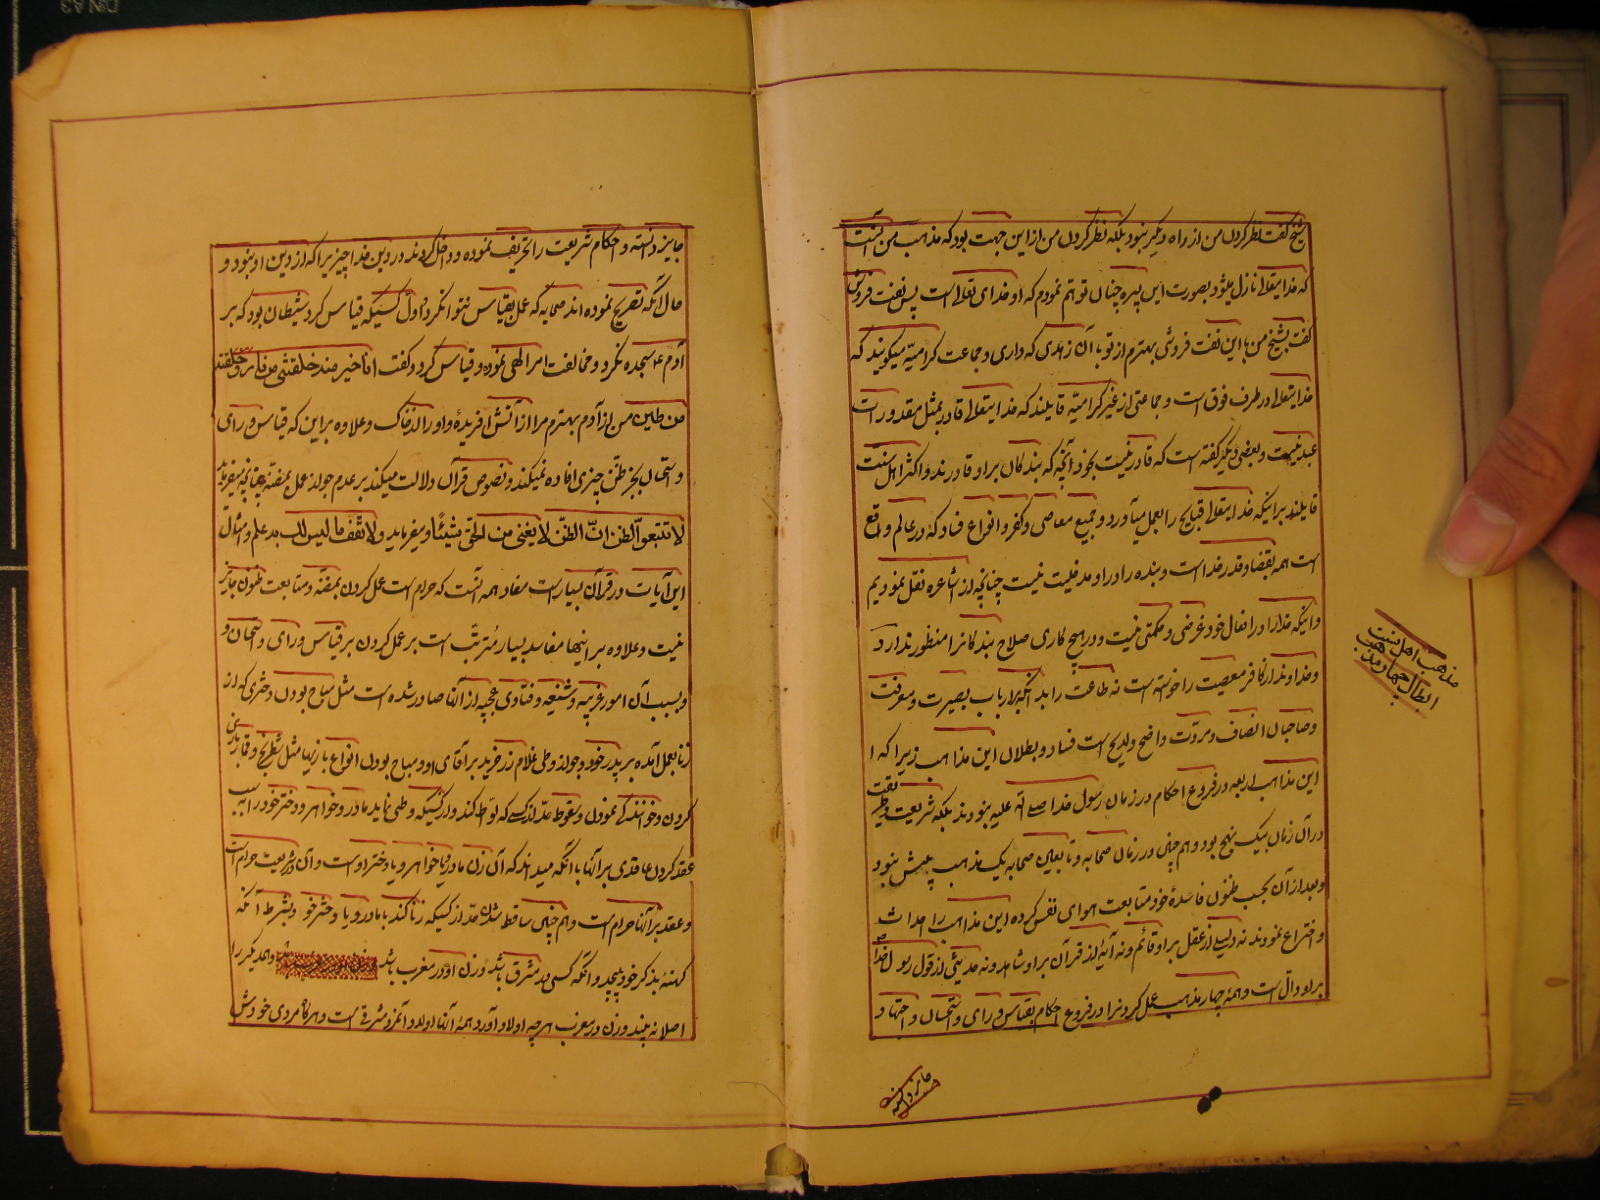 شیخ گفت نظر کردن من از راه دیگر نبود بلکه نظر کردن من از این جهت بود که مذهب من آنست
که خدایتعالی نازل میشود بصورت این پسره چنان توهم نمودم که او خدای تعالی است پس نفت فروش
گفت بشیخ من با این نفت فروشی بهترم از تو با آن زهدی که داری و جماعت کرامیه میکویند که
خدایتعالی در طرف فوق است و جماعتی از غیر کرامیه قایلند که خدایتعالی قادر بمثل مقدورات
عبد نیست و بعضی دیکر کفته است که قادر نیست بخود آنچه که بندکان براو قادرند و اکثر اهل سنت
قایلند براینکه خدایتعالی قبایح را بعمل میآورد و جمیع معاصی و کفر و انواع فساد که در عالم واقع
است همه بقضا و قدر خدا است و بنده را در او مدخلیت نیست چنانچه از اشاعره نقل نمودیم
و اینکه خدا را در افعال خود غرضی و حکمتی نیست و در هیچ کاری صلاح بندکانرا منظور ندارد
و خداوند از کافر معصیت را خواسته است نه طاعت را بدانکه بر ارباب بصیرت و معرفت
و صاحبان انصاف و مروت واضح و لایح است فساد و بطلان این مذاهب زیرا که
این مذاهب اربعه در فروع احکام در زمان رسول خدا صلی الله علیه نبودند بلکه شریعت و طریقت
در آن زمان بیک نهج بود و هم چنین در زمان صحابه و تابعین صحابه یک مذهب بیش نبود
و بعد از آن بحسب ظنون فاسدهٔ خود متابعت هوای نفس کرده این مذاهب را احداث
و اختراع نمودند نه دلیلی از عقل بر او قائم و نه آیهٔ از قرآن براو شاهد و نه حدیثی از قول رسول خدا ص
بر او دال است و همهٔ چهار مذهب عمل کردند در فروع احکام بقیاس و رای و استحسان و اجتهاد
جایز دانسته
مذهب اهل سنت
ابطال چهار مذهب
جایز دانسته و احکام شریعت را تحریف نموده و داخل کردند در دین خدا چیزیرا که از دین او نبود و
حال آنکه تصریح نموده اند صحابه که عمل بقیاس نتوان کرد و اول کسیکه قیاس کرد شیطان بود که بر
آدم ع سجده نکرد و مخالفت امر الهی نموده و قیاس کرد و کفت انا خیر منه خلقتنی من نار و خلقته
من طین من از آدم بهترم مرا از آتش آفریدهٔ و او را از خاک و علاوه بر این که قیاس و رای
و استحسان بجز ظن چیزی افاده نمیکند و نصوص قرآن دلالت میکند بر عدم جواز عمل بمظنه چنانچه میفرماید
لا تتبعوا الظن ان الظن لا یغنی من الحق شیئا و میفرماید و لا تقف ما لیس لک به علم و امثال
این آیات در قرآن بسیار است مفاد همه آنست که حرام است عمل کردن بمظنه و متابعت ظنون جایز
نیست و علاوه بر اینها مفاسد بسیار مترتب است بر عمل کردن بر قیاس و رای و استحسان و
و بسبب آن امور غریبه و شنیعه و فتاوی عجیبه از آنها صادر شده است مثل مباح بودن دختری که از
زنا بعمل آمده بر پدر خود و جواز وطی غلام زر خرید بر آقای او و مباح بودن انواع بازیها مثل شطرنج و قمار بازی
کردن و خوانندکی نمودن و سقوط حد از کسی که لواط کند و از کسیکه وطی نماید مادر و خواهر و دختر خود را بسبب
عقد کردن عاقدی بر آنها با آنکه میداند که آن زن مادر یا خواهر و یا دختر اوست و آن در شریعت حرام است
و عقد بر آنها حرام است و هم چنین ساقط شدن حد از کسیکه زنا کند با مادر و یا دختر خود بشرط آنکه
کهنهٔ بذکر خود بپیچد و آنکه کسی در مشرق باشد و زن او در مغرب باشد و همدیکر را
اصلا نه بینند و زن در مغرب هر چه اولاد آورد همهٔ آنها اولاد آنمرد مشرقی است و هرکاه مردی خودش